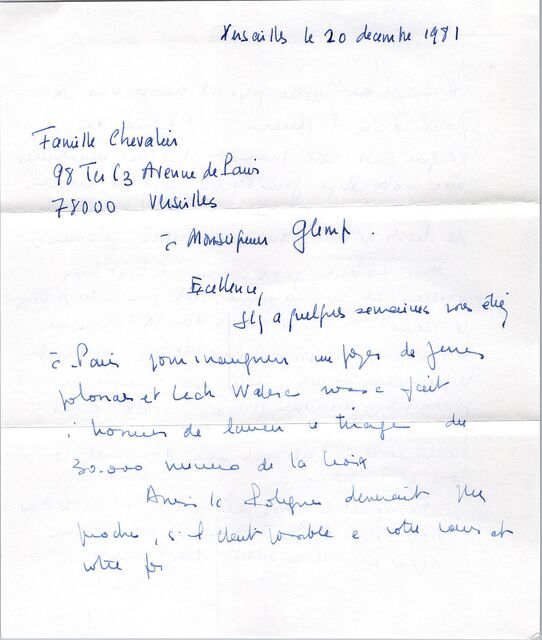 Versailles le 20 decembre 1981
Famille Chevalier
98 Ter C3 Avenue de Paris
78000 Versailles
à Monseigneur Glemp.
Excellence,
Il y a quelques semaines vous étiez
à Paris pour inaugurer un foyer de jeunes
polonais et Lech Walesa nous a fait
l honneur de lancer le tirage du
30.000 numero de la Croix
Ainsi la Pologne devenait plus
proche, s'il etait possible a votre cœur et
votre foi